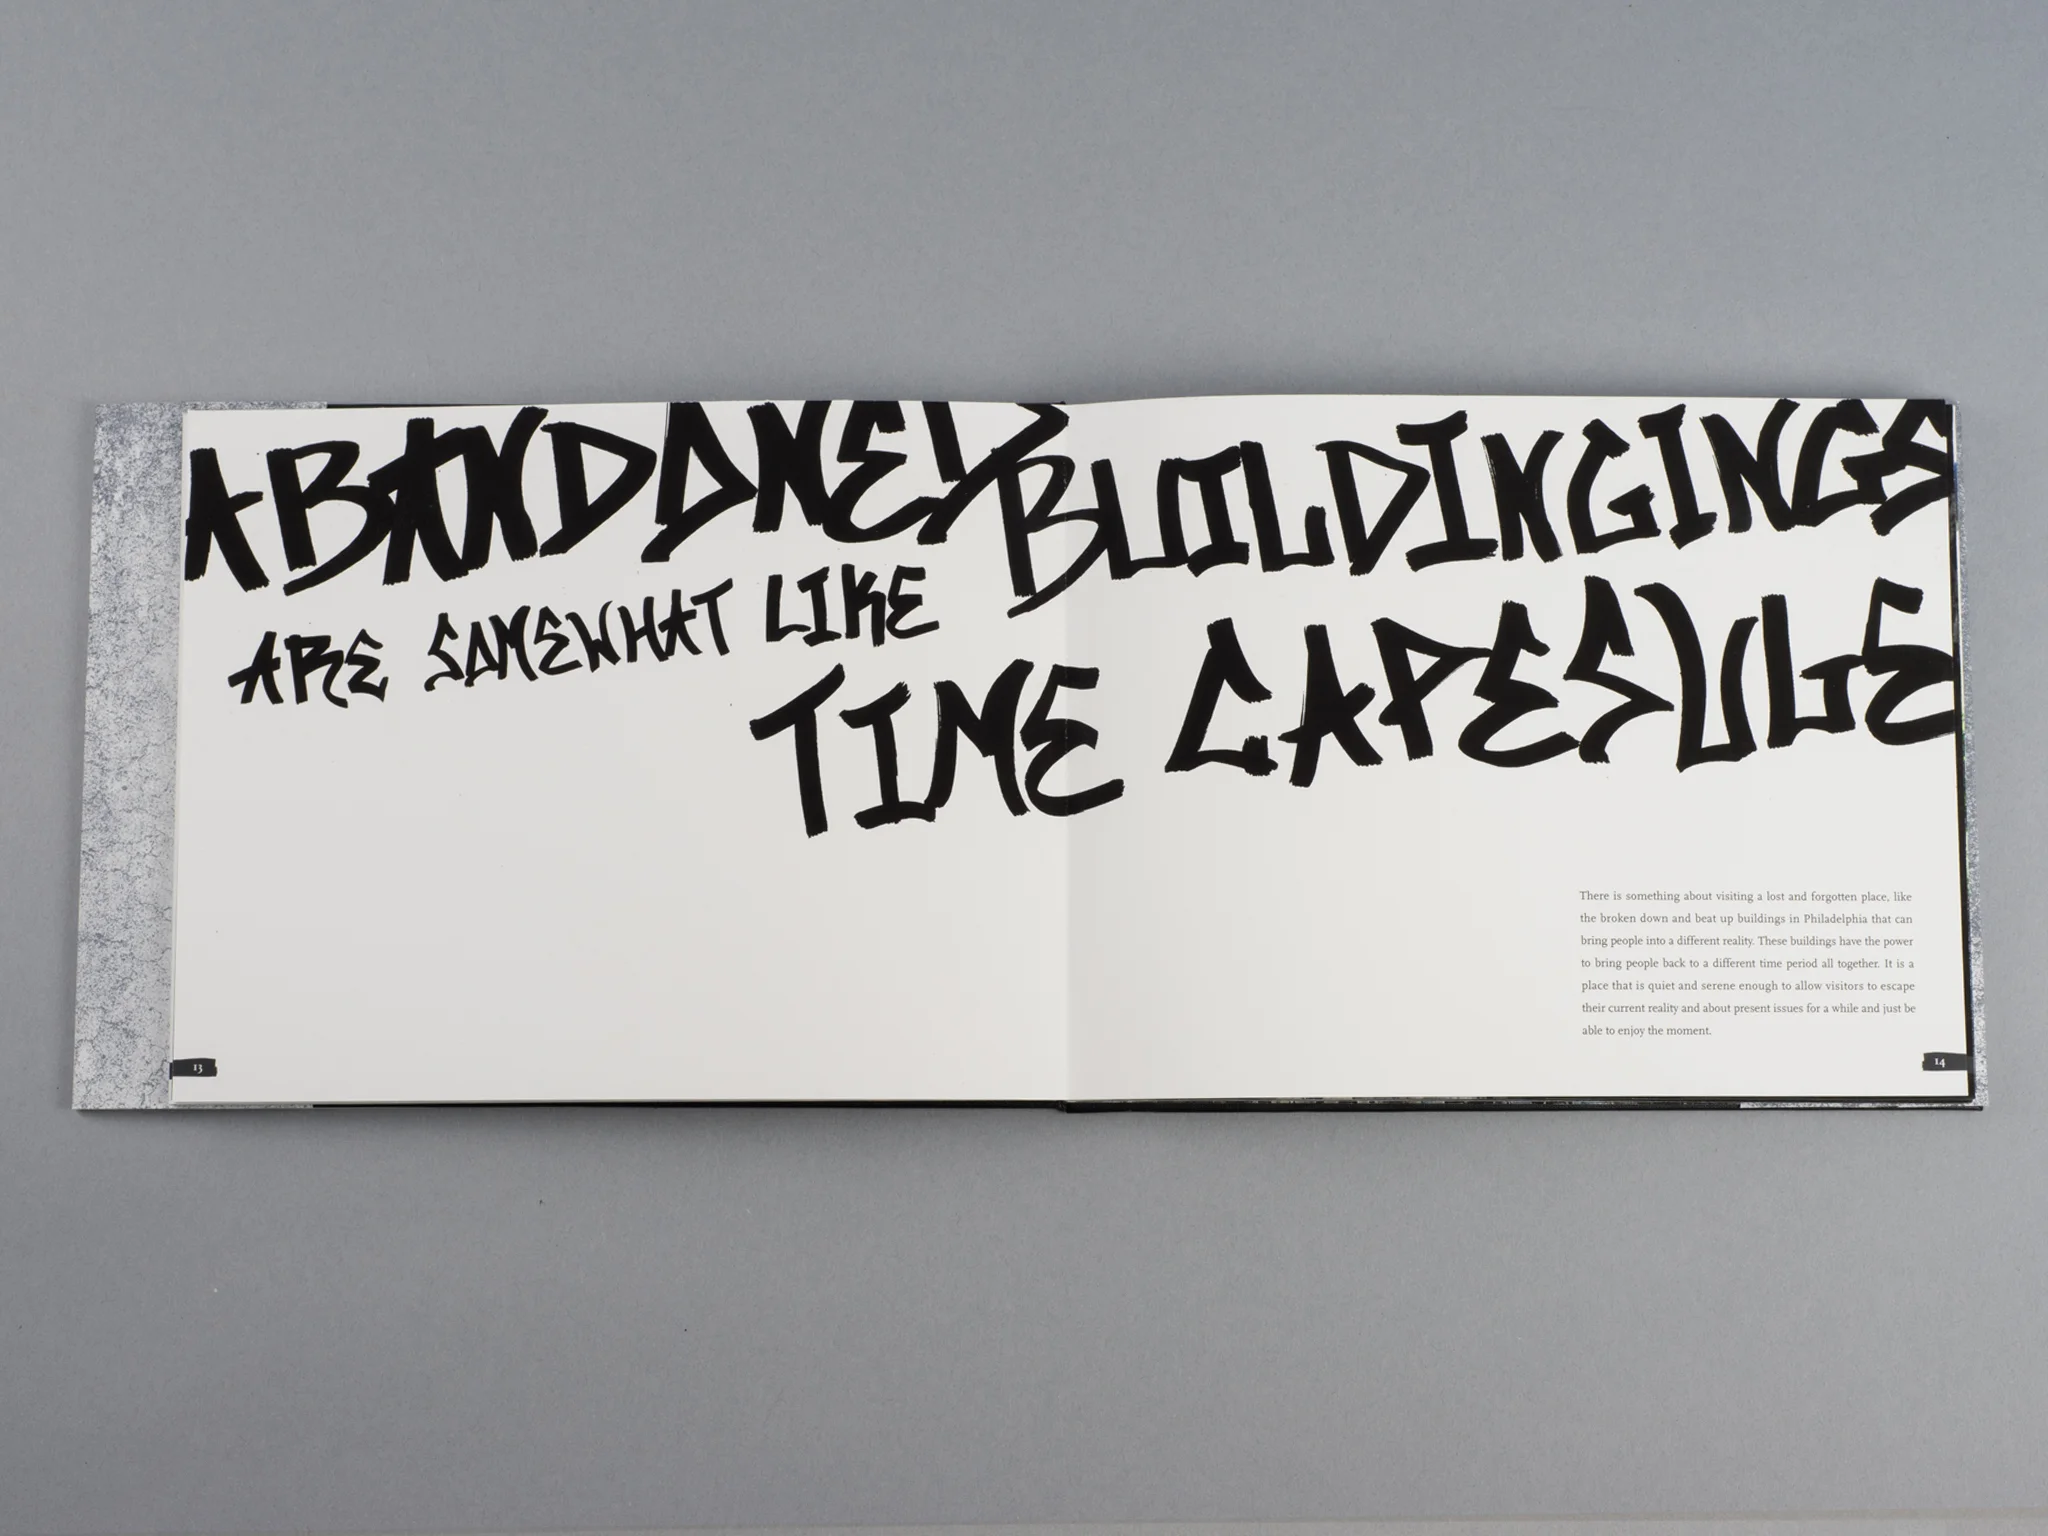 ABANDONED BUILDINGINGS
ARE SOMEWHAT LIKE
TIME CAPESULE
There is something about visiting a lost and forgotten place, like
the broken down and beat up buildings in Philadelphia that can
bring people into a different reality. These buildings have the power
to bring people back to a different time period all together. It is a
place that is quiet and serene enough to allow visitors to escape
their current reality and about present issues for a while and just be
able to enjoy the moment.
13
14